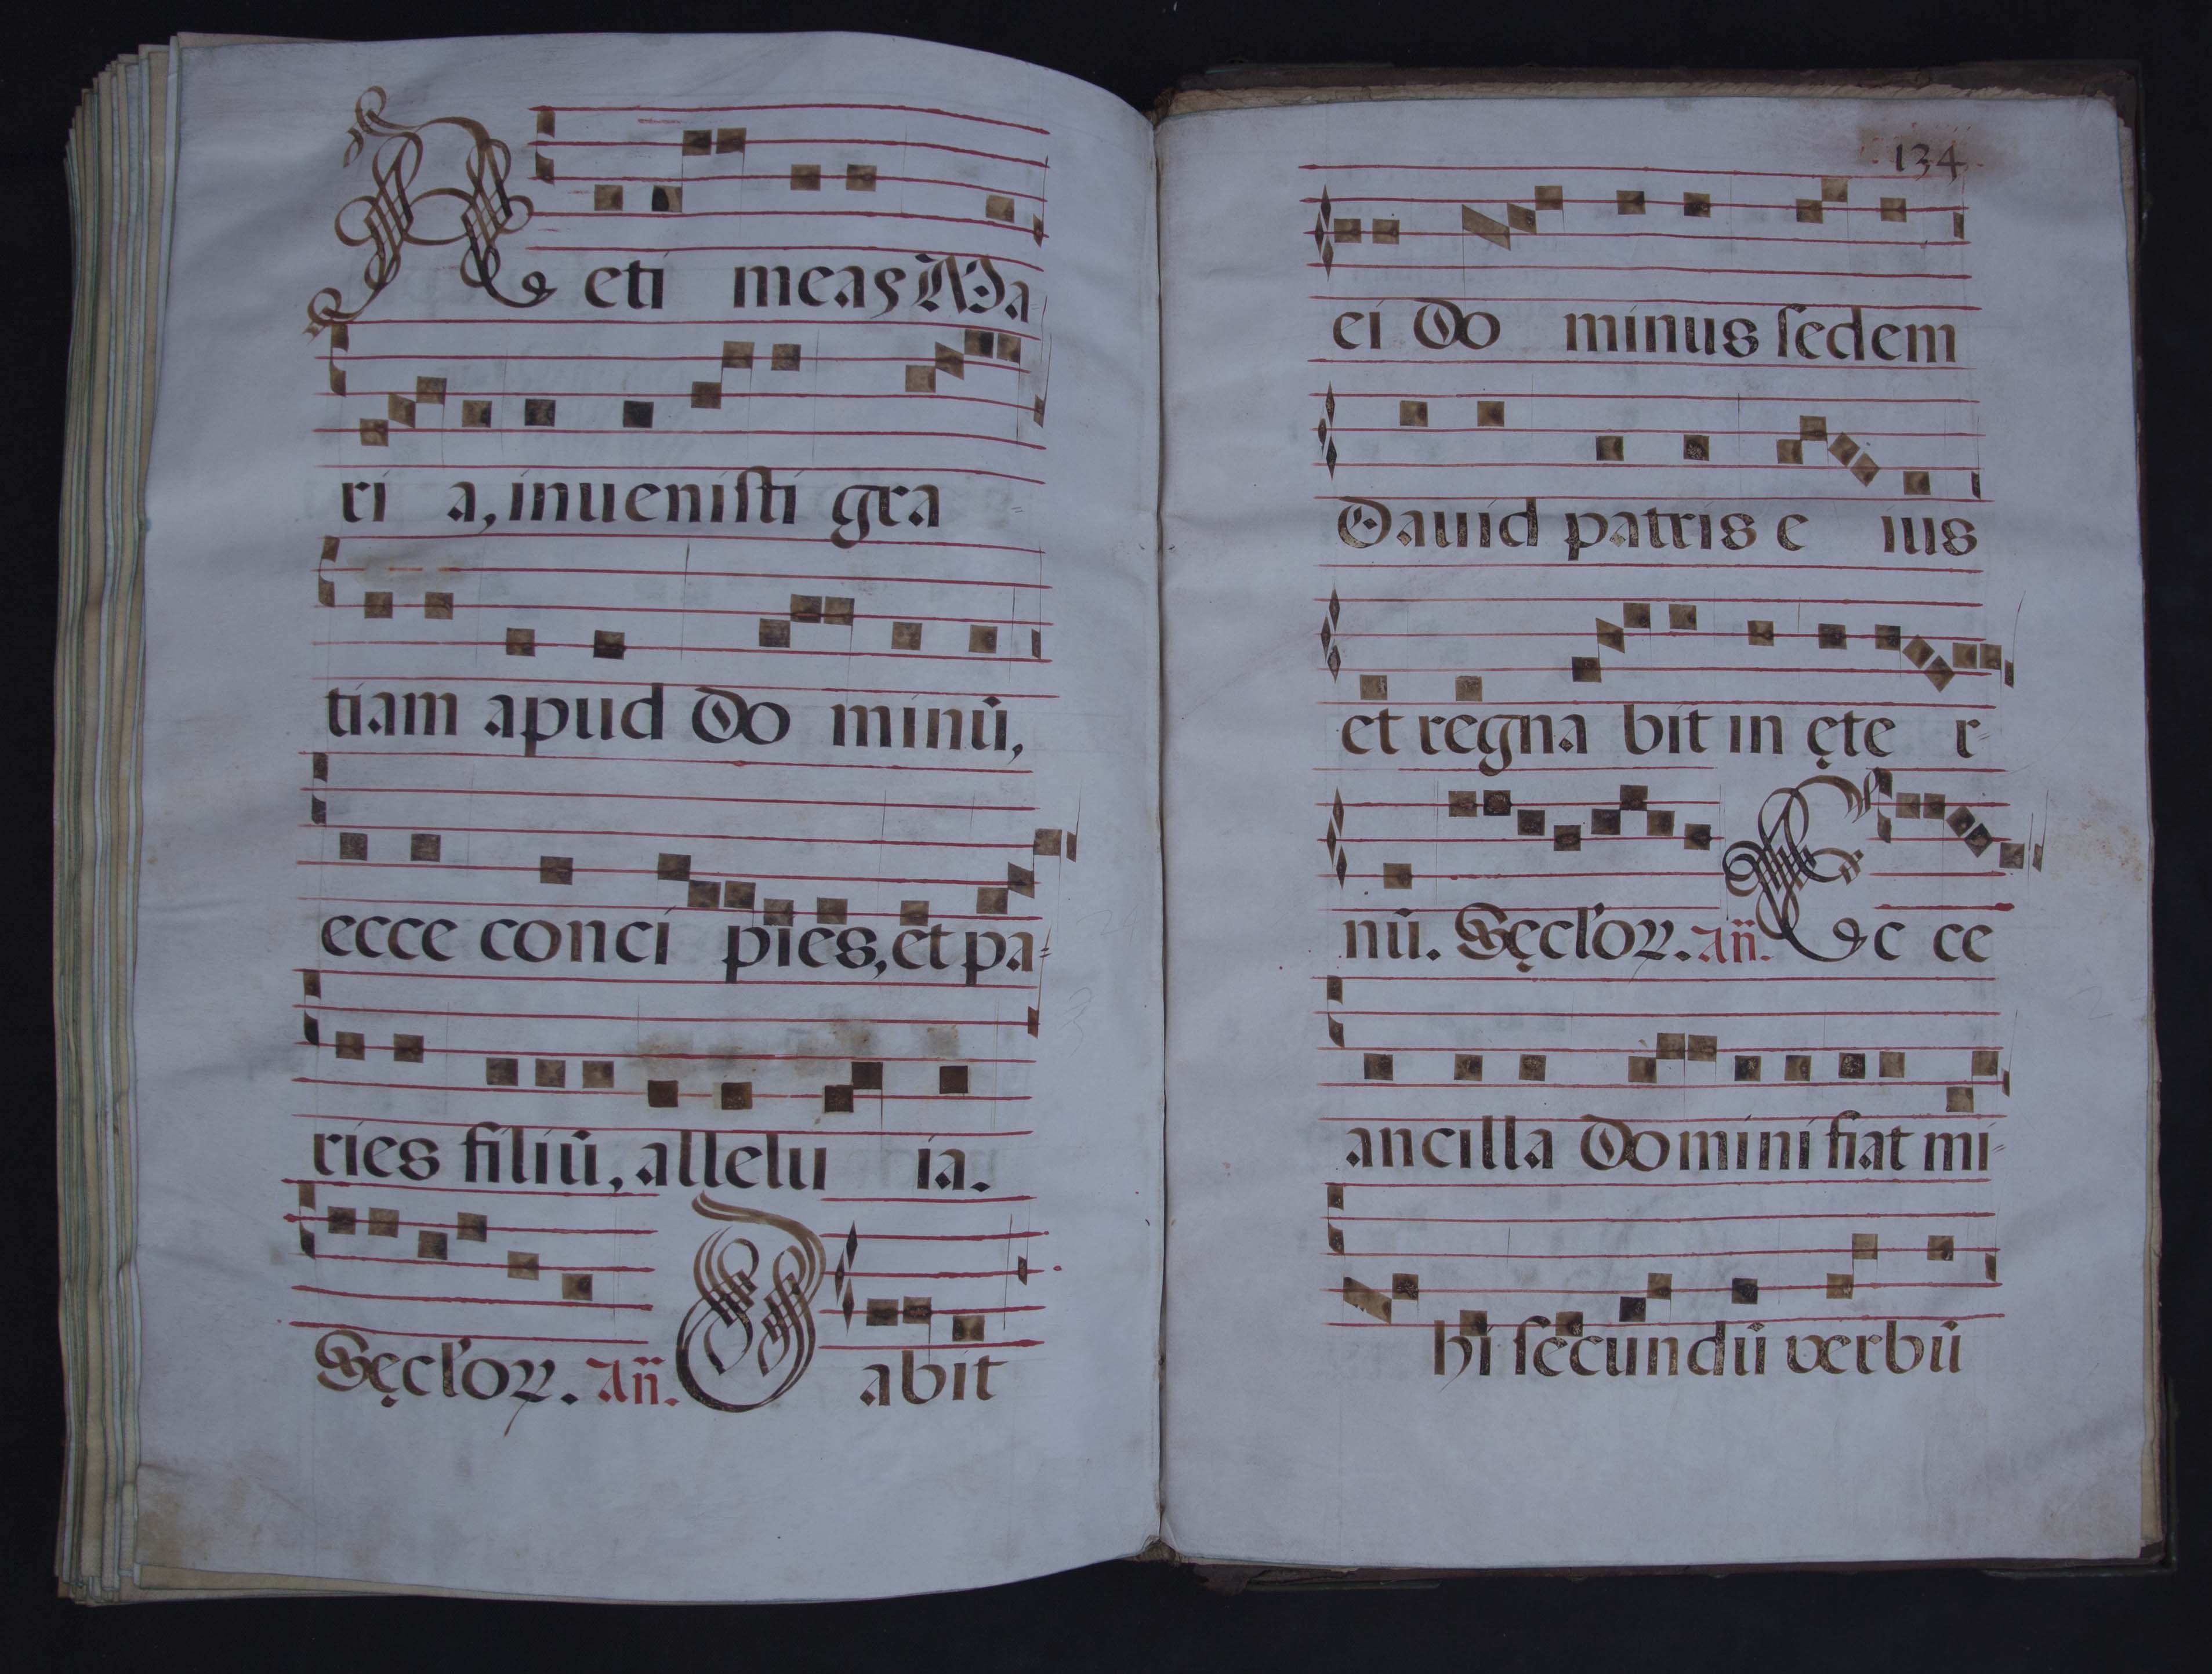 Neti meas Ma
ri a, inuenisti gra=
tiam apud Do minū,
ecce conci pies, et pa=
ries filiū, allelu ia.
Sęcl'oꝝ. Añ. Dabit
134
ei Do minus sedem
Dauid patris e ius
et regna bit in ęte r=
nū. Sęcl'oꝝ. Añ. Ec ce
ancilla Domini fiat mi=
hi secundū verbū